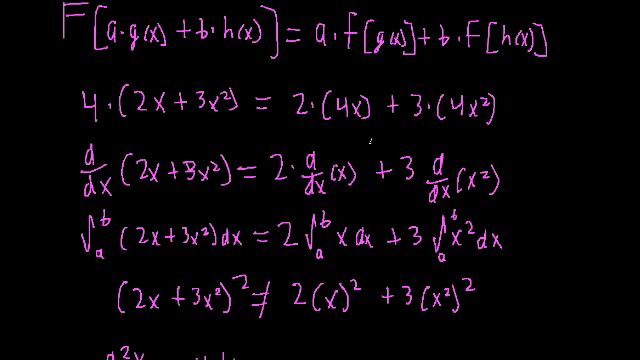 F[a·g(x) + b·h(x)] = a·F[g(x)] + b·F[h(x)]
4·(2x + 3x²) = 2·(4x) + 3·(4x²)
d/dx (2x + 3x²) = 2·d/dx(x) + 3 d/dx(x²)
∫ₐᵇ (2x + 3x²)dx = 2∫ₐᵇ x dx + 3∫ₐᵇ x² dx
(2x + 3x²)² ≠ 2(x)² + 3(x²)²